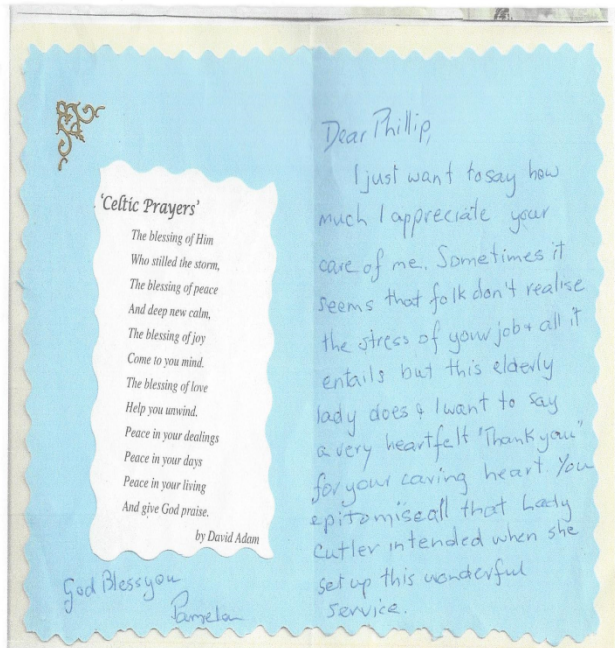 'Celtic Prayers'
The blessing of Him
Who stilled the storm,
The blessing of peace
And deep new calm,
The blessing of joy
Come to you mind.
The blessing of love
Help you unwind.
Peace in your dealings
Peace in your days
Peace in your living
And give God praise.
by David Adam
God Bless you
Pamela
Dear Phillip,
I just want to say how
much I appreciate your
care of me. Sometimes it
seems that folk don't realise
the stress of your job & all it
entails but this elderly
lady does & I want to say
a very heartfelt "Thank you"
for your caring heart. You
epitomise all that Lady
Cutler intended when she
set up this wonderful
service.